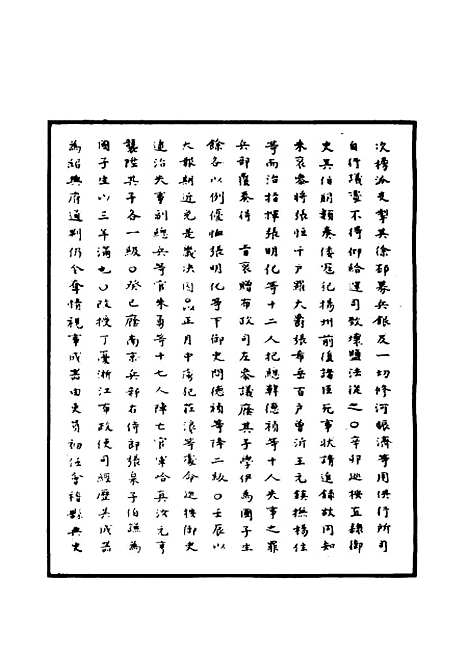 次掾派支掣其徐邳募兵銀及一切修河賑濟等用俱行所司
自行議處不得仰給運司致壞鹽法從之○辛卯巡按直隸御
史吳伯朋類奏倭寇犯楊州前後諸臣死事狀請追錄故同知
朱裒參將張恒千戶羅大爵張希岳百戶曾沂王元鎮撫楊住
等而治指揮張明化等十二人把總韓德禎等十人失事之罪
兵部覆奏得 旨裒贈布政司左參議廕其子學伊為國子生
餘各以例優恤張明化等下御史問德禎等降二級○壬辰以
大報期近先是歲決囚正月中
追治失事副總兵等官朱勇等十七人陣亡官軍哈真汝元亨
襲陞其子各一級○癸巳廕南京兵部右侍郎張臬子伯 為
國子生以三年滿也○改授丁憂浙江布政使司經歷吳成器
為紹興府通判仍令奪情視事成器由吏員初任會稽縣典史